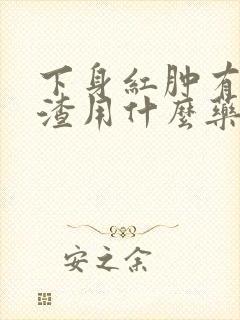 下身紅肿有
渣用什麼藥
安之余